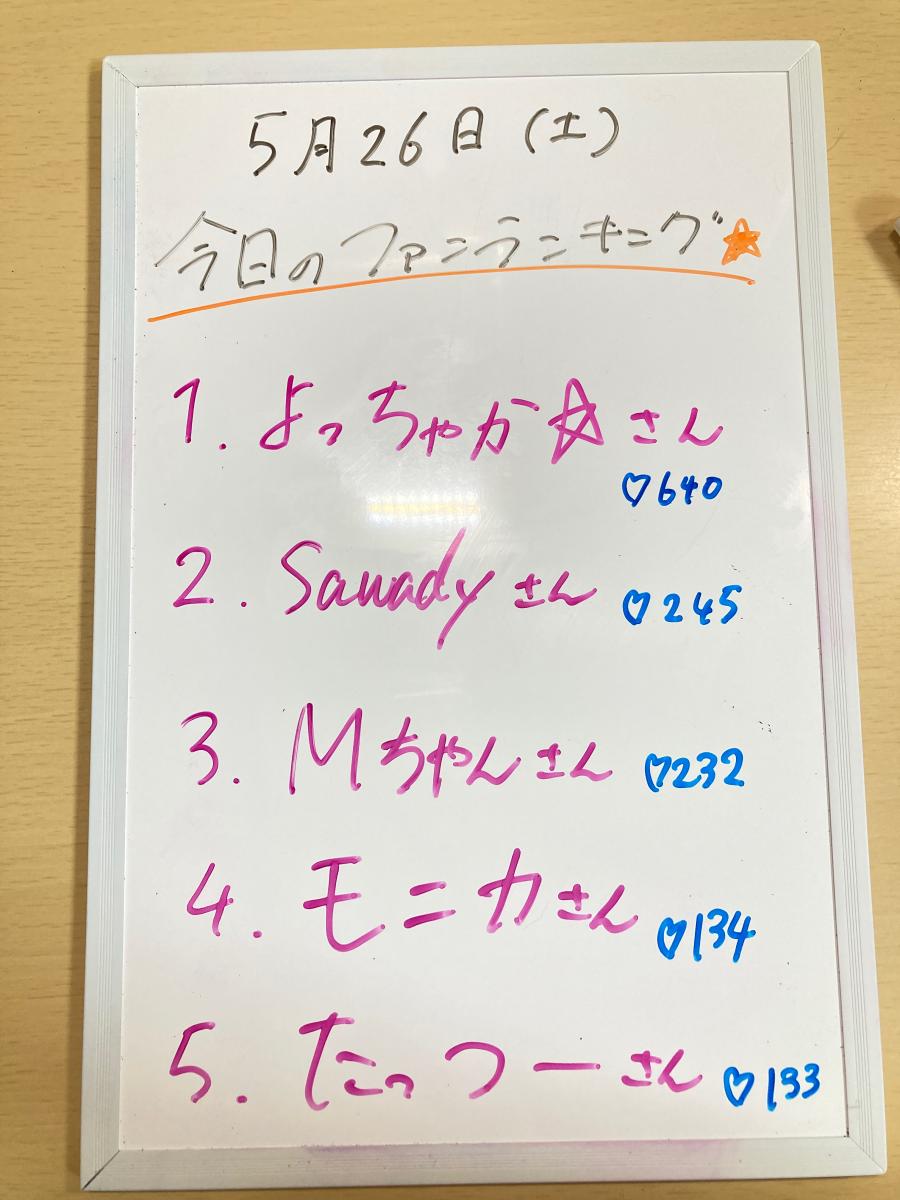 5月26日(土)
今日のファンランキング★
1. よっちゃか☆さん
♡640
2. Sawadyさん ♡245
3. Mちゃんさん ♡232
4. モニカさん ♡134
5. たっつーさん ♡133